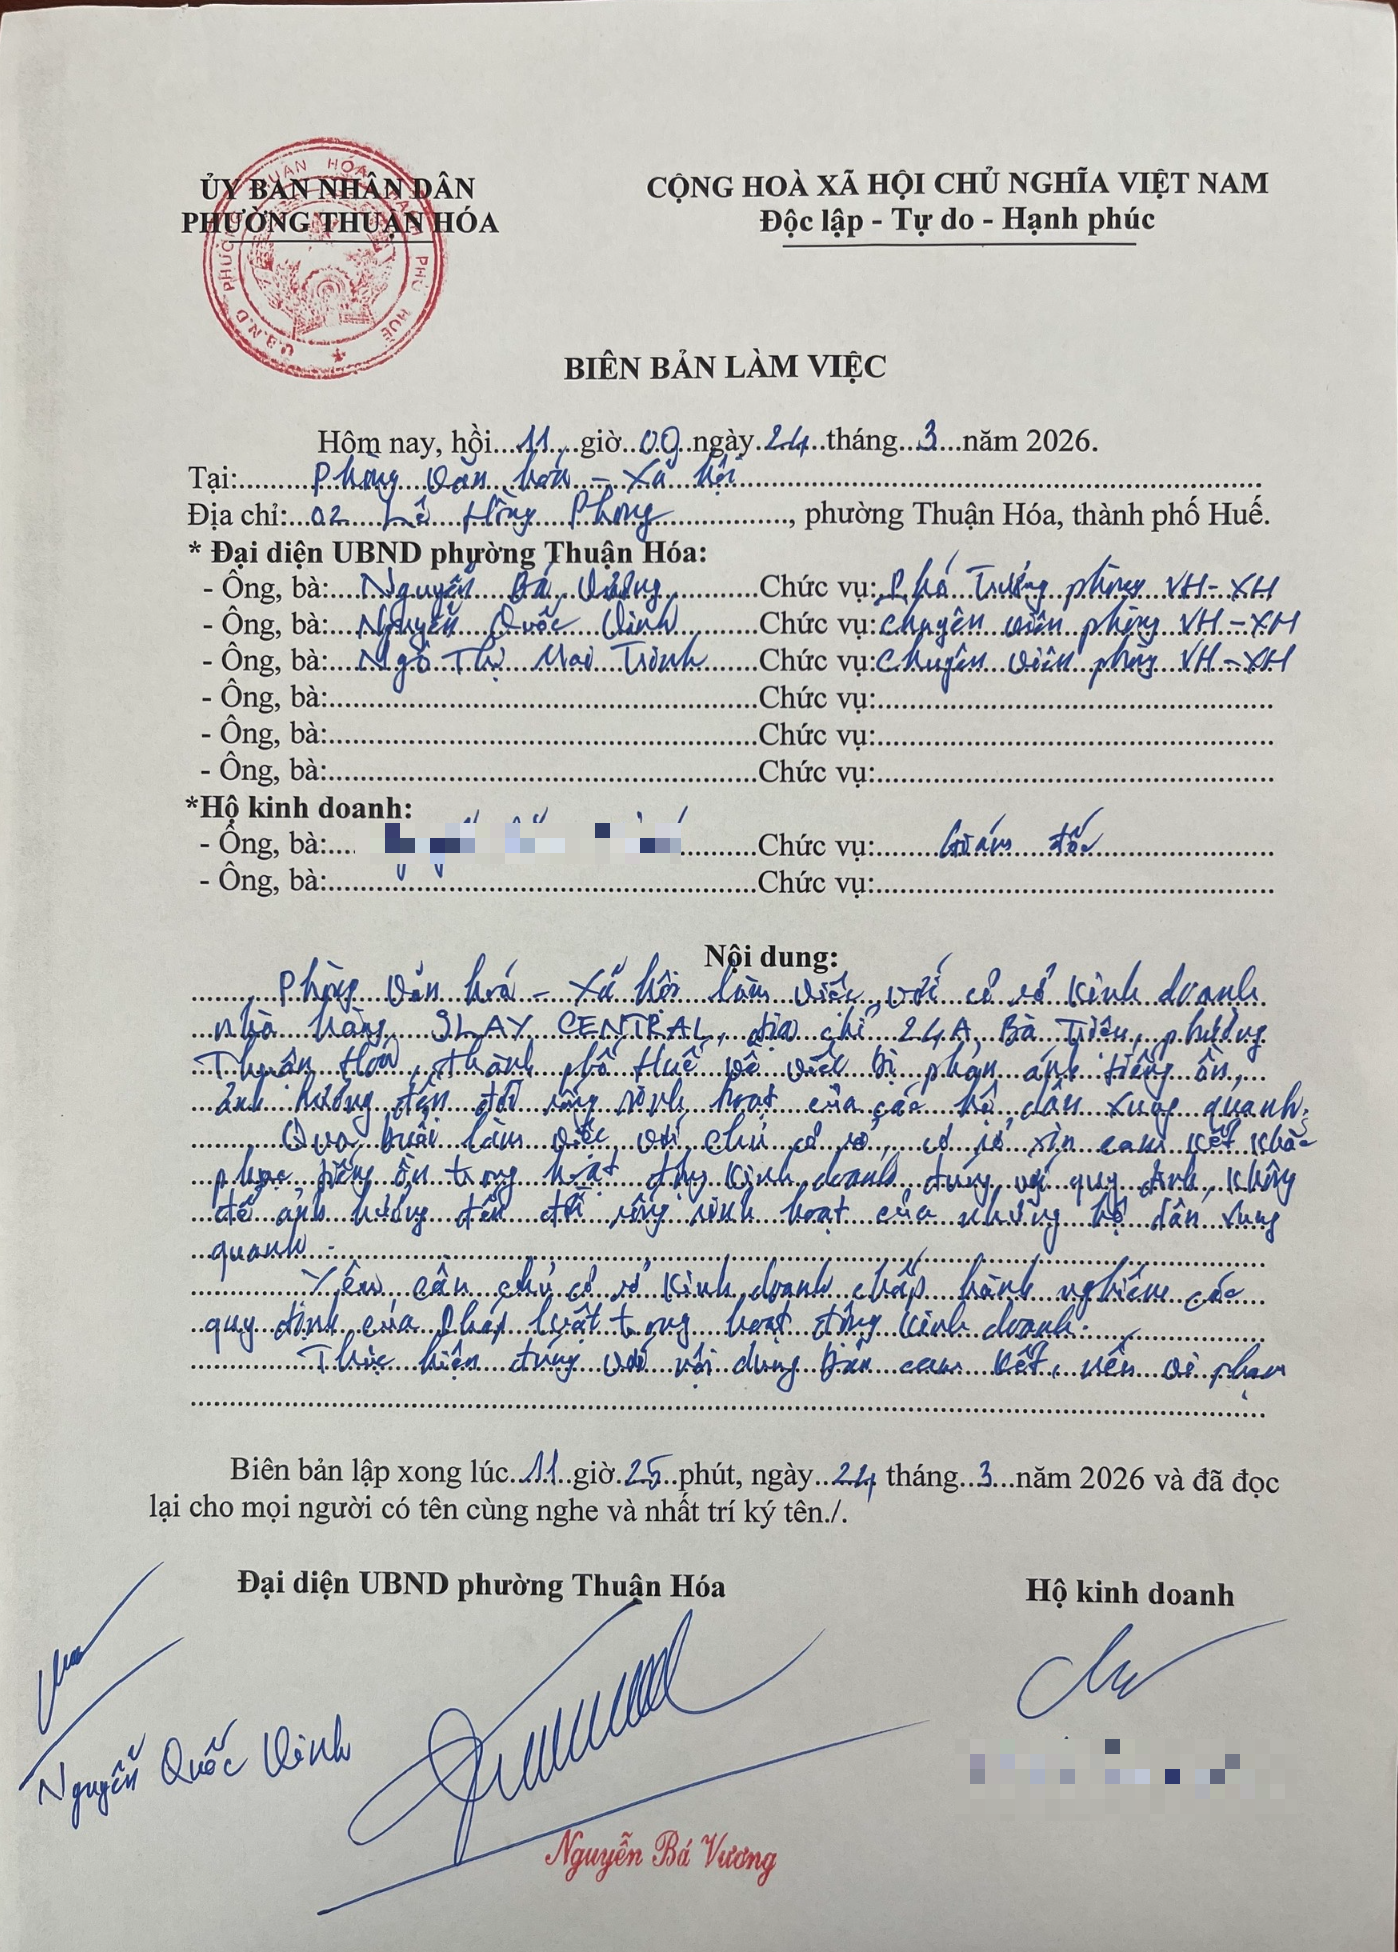 ỦY BAN NHÂN DÂN
PHƯỜNG THUẬN HÓA
CỘNG HOÀ XÃ HỘI CHỦ NGHĨA VIỆT NAM
Độc lập - Tự do - Hạnh phúc
U.B.N.D PHƯỜNG THUẬN HÓA THÀNH PHỐ HUẾ
BIÊN BẢN LÀM VIỆC
Hôm nay, hồi 11 giờ 00 ngày 24 tháng 3 năm 2026.
Tại: Phòng Văn hoá - Xã hội
Địa chỉ: 02 Lê Hồng Phong, phường Thuận Hóa, thành phố Huế.
* Đại diện UBND phường Thuận Hóa:
- Ông, bà: Nguyễn Bá Vương Chức vụ: Phó Trưởng phòng VH-XH
- Ông, bà: Nguyễn Quốc Vinh Chức vụ: Chuyên viên phòng VH-XH
- Ông, bà: Ngô Thị Mai Trinh Chức vụ: Chuyên viên phòng VH-XH
- Ông, bà: Chức vụ:
- Ông, bà: Chức vụ:
- Ông, bà: Chức vụ:
*Hộ kinh doanh:
- Ông, bà: Chức vụ: Giám đốc
- Ông, bà: Chức vụ:
Nội dung:
Phòng Văn hoá - Xã hội làm việc với cơ sở kinh doanh
nhà hàng SLAY CENTRAL, địa chỉ 24A Bà Triệu, phường
Thuận Hoá, thành phố Huế về việc bị phản ánh tiếng ồn,
ảnh hưởng đến đời sống sinh hoạt của các hộ dân xung quanh.
Qua buổi làm việc với chủ cơ sở, cơ sở xin cam kết khắc
phục tiếng ồn trong hoạt động kinh doanh đúng với quy định, không
để ảnh hưởng đến đời sống sinh hoạt của những hộ dân xung
quanh.
Yêu cầu chủ cơ sở kinh doanh chấp hành nghiêm các
quy định của pháp luật trong hoạt động kinh doanh.
Thực hiện đúng với nội dung bản cam kết, nếu vi phạm
Biên bản lập xong lúc 11 giờ 25 phút, ngày 24 tháng 3 năm 2026 và đã đọc
lại cho mọi người có tên cùng nghe và nhất trí ký tên./.
Đại diện UBND phường Thuận Hóa
Hộ kinh doanh
Nguyễn Quốc Vinh
Nguyễn Bá Vương